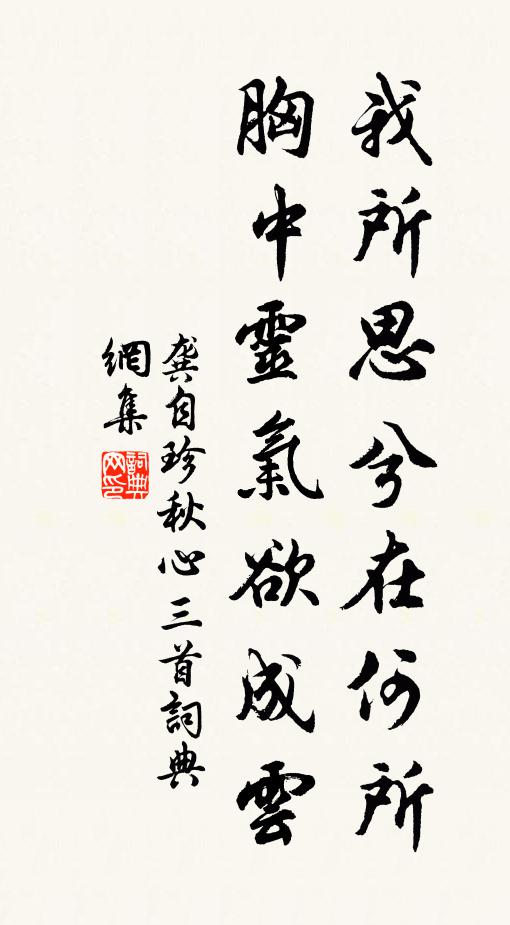 我所思兮在何所
胸中靈氣欲成雲
龔自珍秋心三首詞典
網集
詞典网印